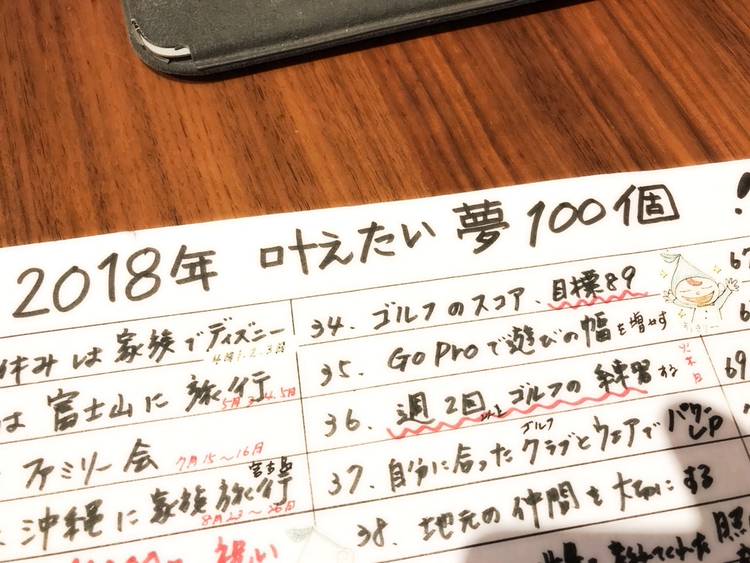 2018年 叶えたい夢100個
休みは家族でディズニー
は富士山に旅行
5月3.4.5日
ファミリー会
7月15〜16日
宮古島
に沖縄に家族旅行
8月23〜26日
祝い
34. ゴルフのスコア、目標89
35. GoProで遊びの幅を増やす
36. 週2回以上ゴルフの練習する
火 木 日
37. 自分に合ったゴルフクラブとウェアでパワーUP
38. 地元の仲間を大切にする
67
69